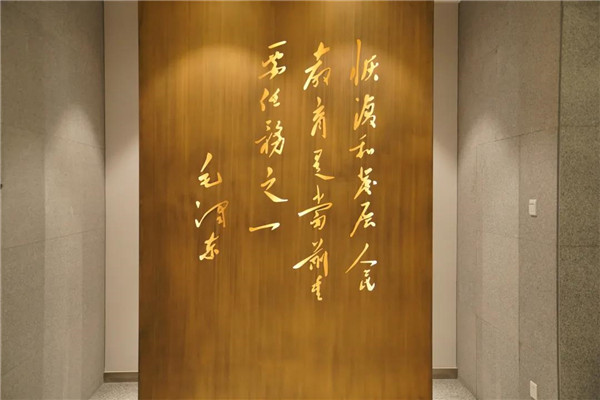 恢复和发展人民
教育是当前重
要任务之一
毛泽东